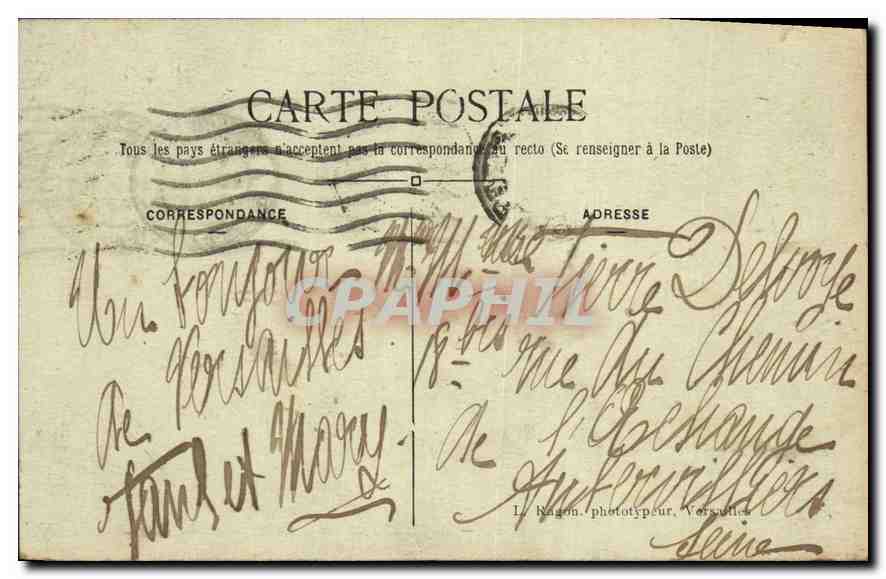 CARTE POSTALE
Tous les pays étrangers n'acceptent pas la correspondance au recto (Se renseigner à la Poste)
CORRESPONDANCE
Un bonjour
de Versailles
Paul et Mary
ADRESSE
Mr Mme Pierre Delvoye
8 bis rue du Chemin
de l'Echange
Aubervilliers
Seine
L. Ragon, phototypeur, Versailles
CPAPHIL